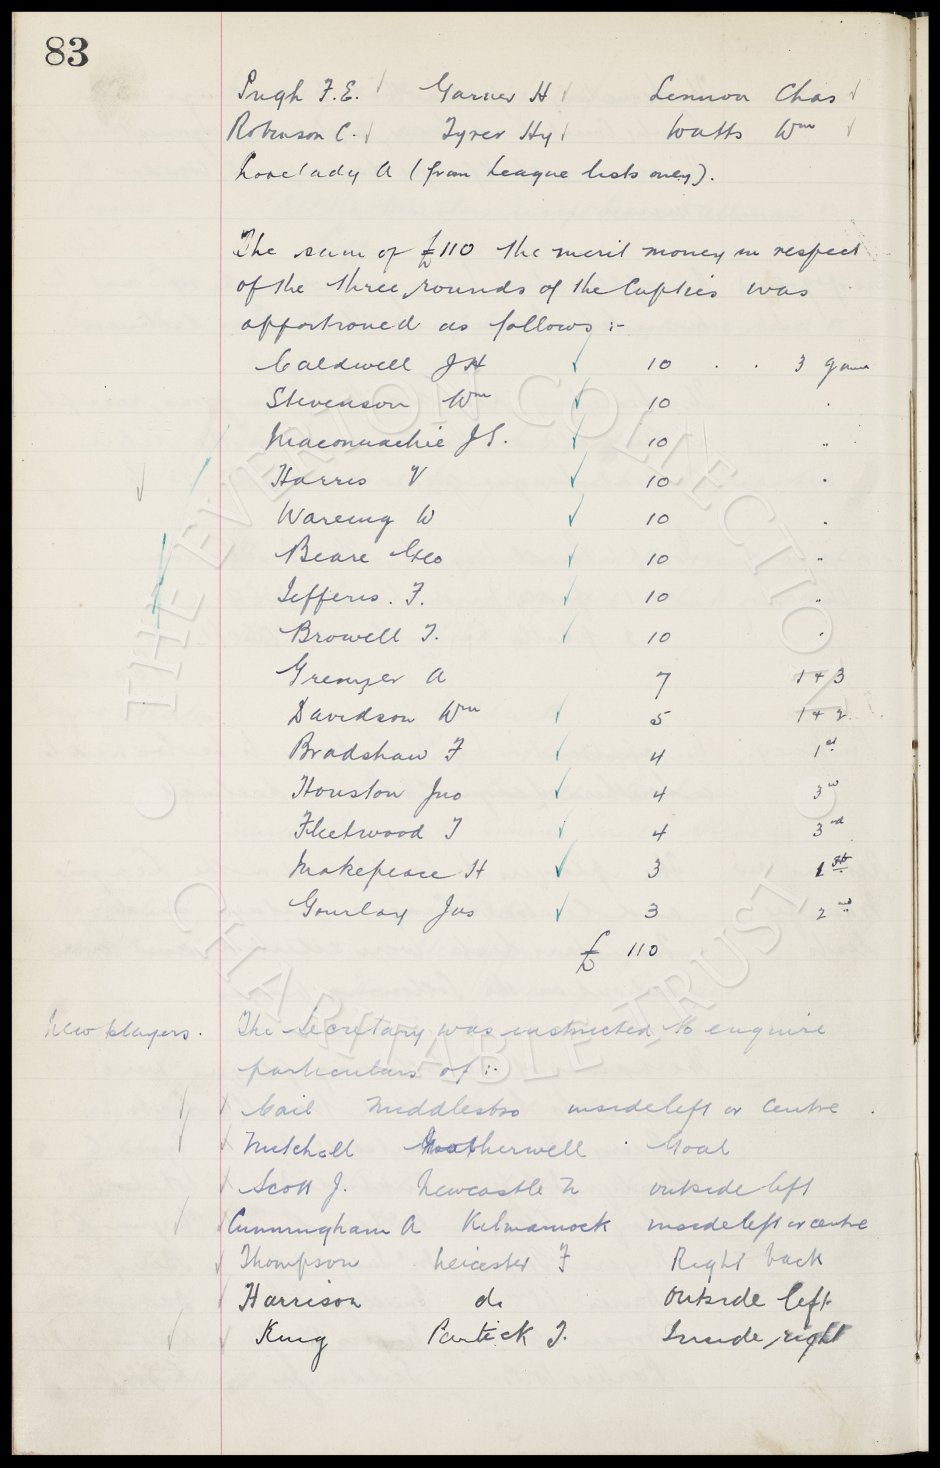 83
Pugh F.E. Garner H Lennon Chas
Robinson C. Tyrer Hy Watts Wm
Lovelady A (from League lists only).
The sum of £110 the merit money in respect
of the three rounds of the Cupties was
apportioned as follows :-
Caldwell JH 10 . . 3 games
Stevenson Wm 10 "
Maconnachie J.S. 10 "
Harris V 10 "
Wareing W 10 "
Beare Geo 10 "
Jefferis. F. 10 "
Browell T. 10 "
Grenyer A 7 1 + 3
Davidson Wm 5 1 + 2
Bradshaw F 4 1st
Houston Jno 4 3rd
Fleetwood T 4 3rd
Makepeace H 3 1st
Gourlay Jas 3 2nd
£ 110
New players. The Secretary was instructed to enquire
particulars of :-
Cail Middlesbro inside left or Centre
Mitchell Motherwell Goal
Scott J. Newcastle U outside left
Cunningham A Kilmarnock inside left or centre
Thompson Leicester F Right back
Harrison do Outside left
King Partick T. Inside right
THE EVERTON COLLECTION
CHARITABLE TRUST